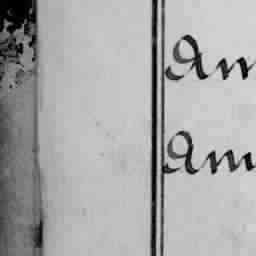 Am
Am